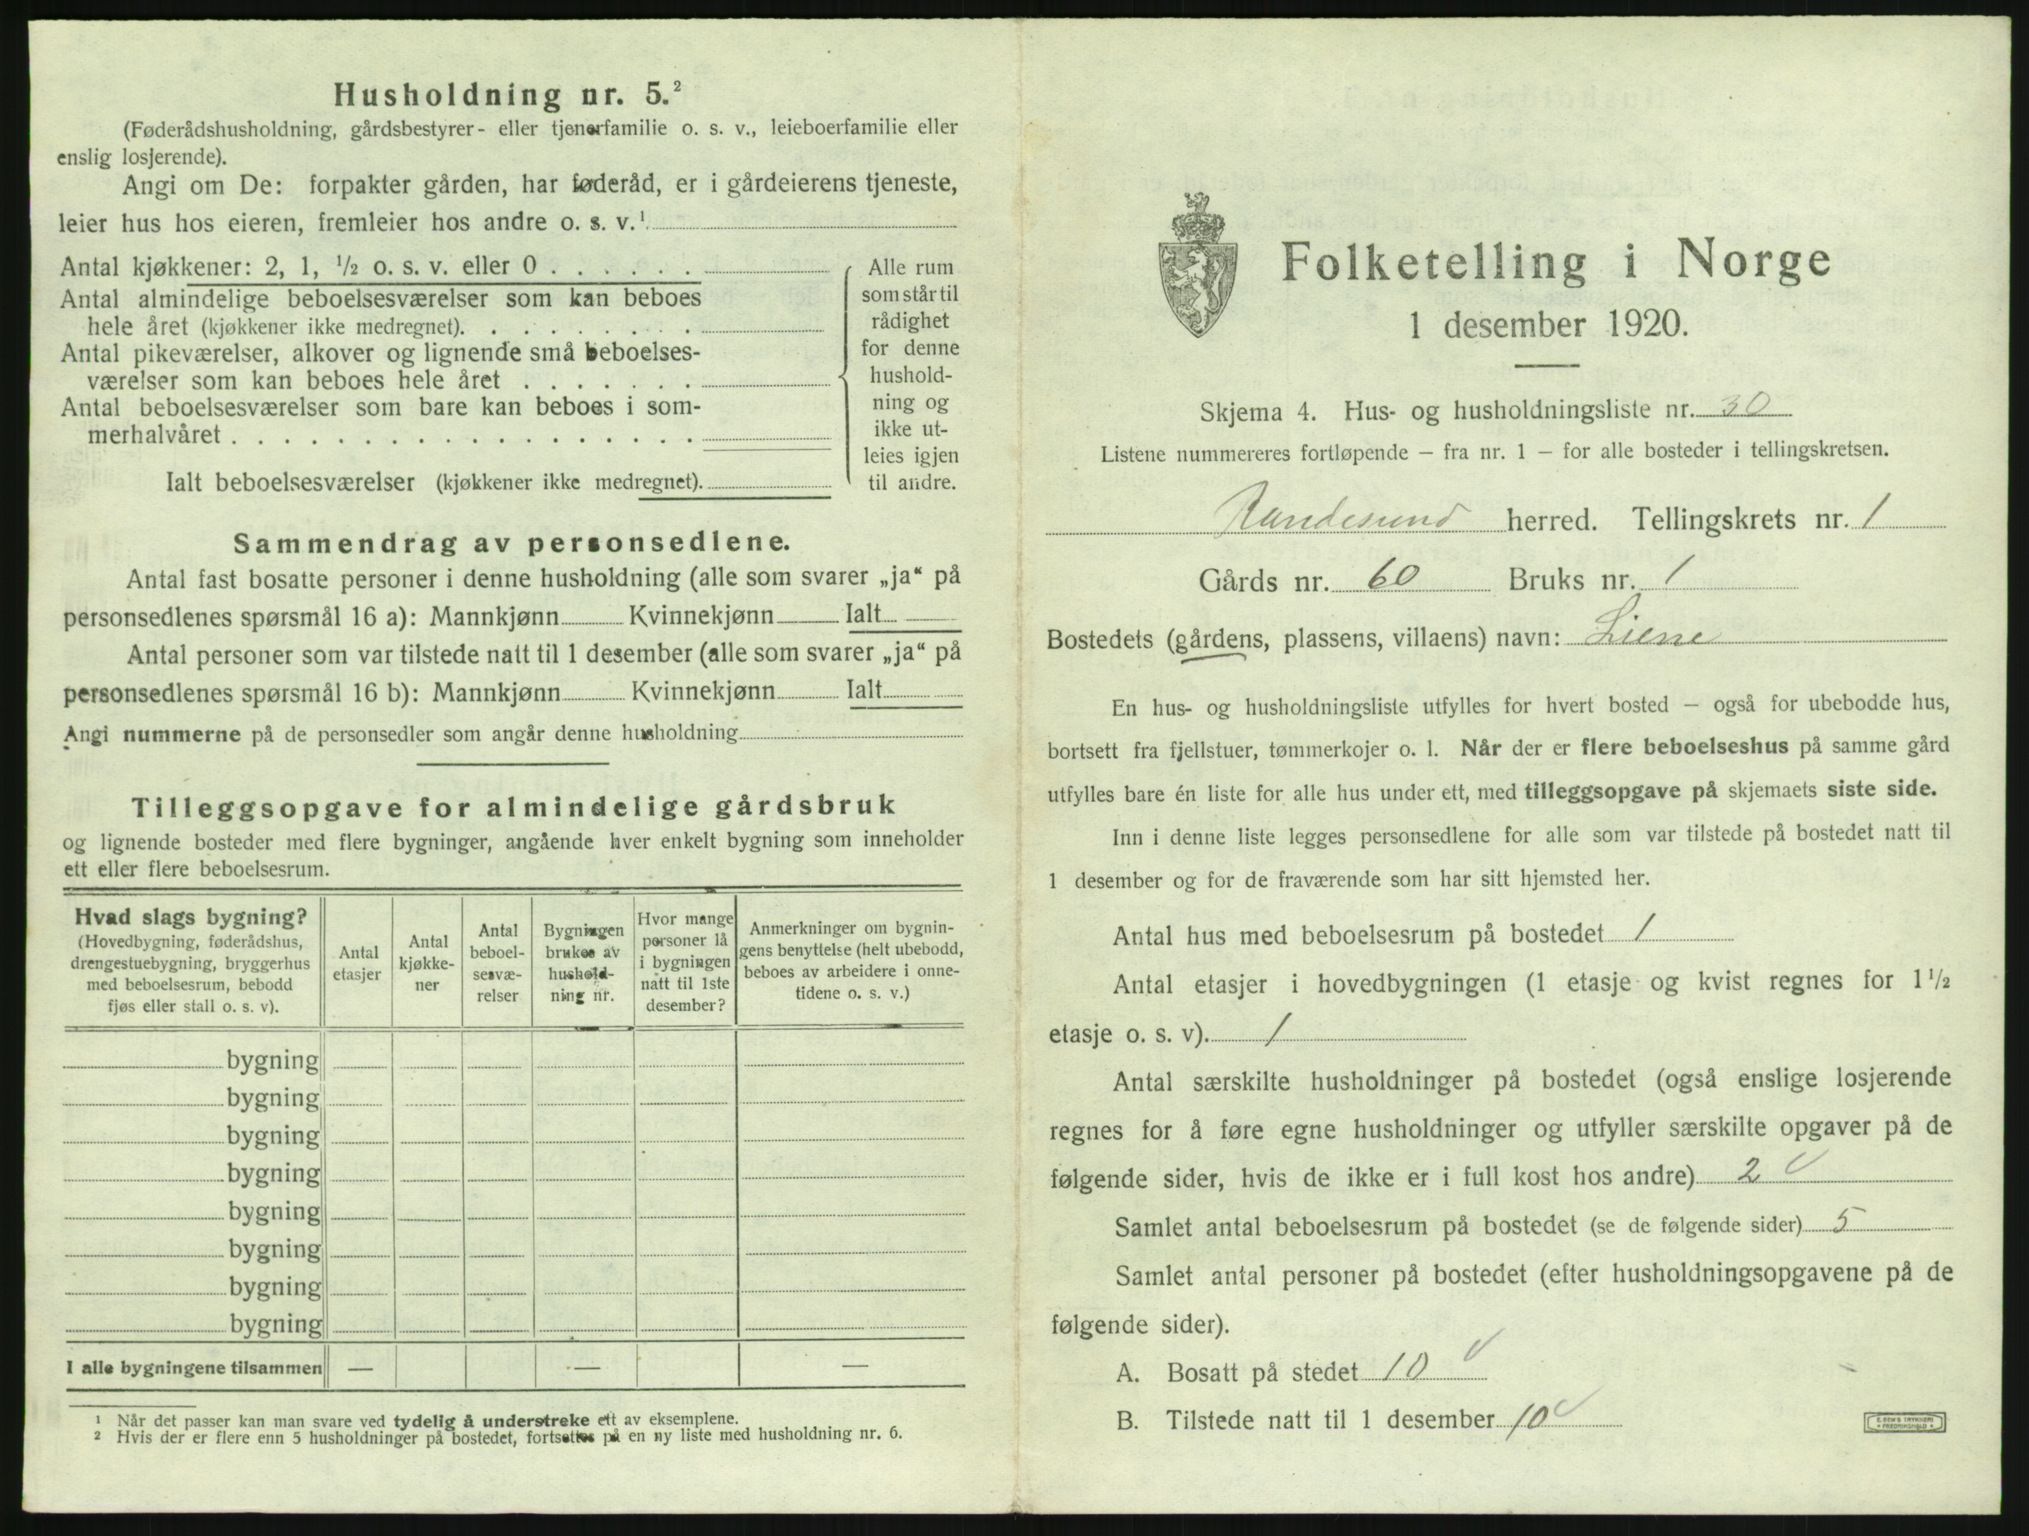 Husholdning nr. 5.²
(Føderådshusholdning, gårdsbestyrer- eller tjenerfamilie o. s. v., leieboerfamilie eller
enslig losjerende).
Angi om De: forpakter gården, har føderåd, er i gårdeierens tjeneste,
leier hus hos eieren, fremleier hos andre o. s. v.¹
Antal kjøkkener: 2, 1, ½ o. s. v. eller 0 . . . . . .
Antal almindelige beboelsesværelser som kan beboes
hele året (kjøkkener ikke medregnet). . . . . . . . .
Antal pikeværelser, alkover og lignende små beboelses-
værelser som kan beboes hele året . . . . . . .
Antal beboelsesværelser som bare kan beboes i som-
merhalvåret . . . . . . . . . . . . . . . . . .
Ialt beboelsesværelser (kjøkkener ikke medregnet).
Alle rum
som står til
rådighet
for denne
hushold-
ning og
ikke ut-
leies igjen
til andre.
Sammendrag av personsedlene.
Antal fast bosatte personer i denne husholdning (alle som svarer „ja“ på
personsedlenes spørsmål 16 a): Mannkjønn Kvinnekjønn Ialt
Antal personer som var tilstede natt til 1 desember (alle som svarer „ja“ på
personsedlenes spørsmål 16 b): Mannkjønn Kvinnekjønn Ialt
Angi nummerne på de personsedler som angår denne husholdning
Tilleggsopgave for almindelige gårdsbruk
og lignende bosteder med flere bygninger, angående hver enkelt bygning som inneholder
ett eller flere beboelsesrum.
Hvad slags bygning?
(Hovedbygning, føderådshus,
drengestuebygning, bryggerhus
med beboelsesrum, bebodd
fjøs eller stall o. s. v).
Antal
etasjer
Antal
kjøkke-
ner
Antal
beboel-
sesvæ-
relser
Bygningen
brukes av
hushold-
ning nr.
Hvor mange
personer lå
i bygningen
natt til 1ste
desember?
Anmerkninger om bygnin-
gens benyttelse (helt ubebodd,
beboes av arbeidere i onne-
tidene o. s. v.)
bygning
bygning
bygning
bygning
bygning
bygning
bygning
bygning
I alle bygningene tilsammen — — —
¹ Når det passer kan man svare ved tydelig å understreke ett av eksemplene.
² Hvis der er flere enn 5 husholdninger på bostedet, fortsettes på en ny liste med husholdning nr. 6.
Folketelling i Norge
1 desember 1920.
Skjema 4. Hus- og husholdningsliste nr. 30
Listene nummereres fortløpende – fra nr. 1 – for alle bosteder i tellingskretsen.
Randesund herred. Tellingskrets nr. 1
Gårds nr. 60 Bruks nr. 1
Bostedets (gårdens, plassens, villaens) navn: Liene
En hus- og husholdningsliste utfylles for hvert bosted – også for ubebodde hus,
bortsett fra fjellstuer, tømmerkojer o. l. Når der er flere beboelseshus på samme gård
utfylles bare én liste for alle hus under ett, med tilleggsopgave på skjemaets siste side.
Inn i denne liste legges personsedlene for alle som var tilstede på bostedet natt til
1 desember og for de fraværende som har sitt hjemsted her.
Antal hus med beboelsesrum på bostedet 1
Antal etasjer i hovedbygningen (1 etasje og kvist regnes for 1½
etasje o. s. v). 1
Antal særskilte husholdninger på bostedet (også enslige losjerende
regnes for å føre egne husholdninger og utfyller særskilte opgaver på de
følgende sider, hvis de ikke er i full kost hos andre) 2
Samlet antal beboelsesrum på bostedet (se de følgende sider) 5
Samlet antal personer på bostedet (efter husholdningsopgavene på de
følgende sider).
A. Bosatt på stedet 10
B. Tilstede natt til 1 desember 10